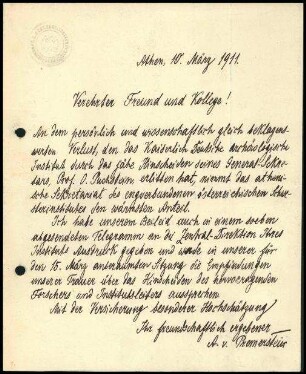 Athen, 10. März 1911.
Verehrter Freund und Kollege!
An dem persönlich und wissenschaftlich gleich beklagens-
werten Verlust, den das Kaiserlich Deutsche archäologische
Institut durch das jähe Hinscheiden seines General-Sekre-
tars, Prof. O. Puchstein erlitten hat, nimmt das atheni-
sche Sekretariat des engverbundenen österreichischen Schwe-
sterinstitutes den wärmsten Anteil.
Ich habe unserem Beileid auch in einem soeben
abgesendeten Telegramm an die Zentral-Direktion Ihres
Instituts Ausdruck gegeben und werde in unserer für
den 15. März anberaumten Sitzung die Empfindungen
unserer Trauer über das Hinscheiden des hervorragenden
Forschers und Institutsleiters aussprechen.
Mit der Versicherung besonderer Hochschätzung
Ihr freundschaftlich ergebener
A. v. Premerstein